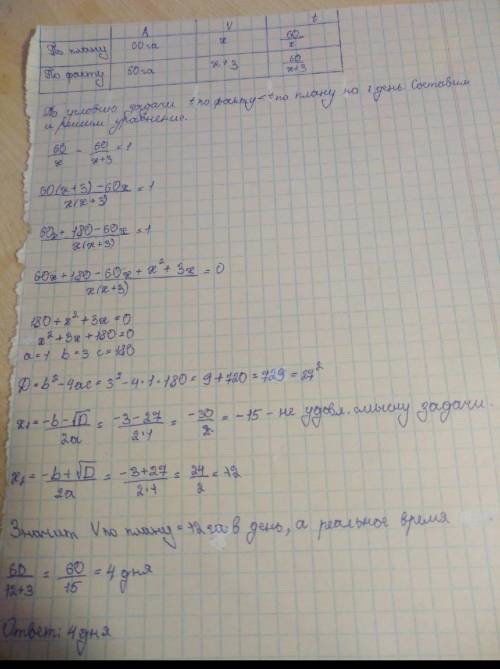 A V t
По плану 60га x 60/x
По факту 60га x+3 60/(x+3)
По условию задачи t по факту < t по плану на 1 день. Составим
и решим уравнение.
60/x - 60/(x+3) = 1
(60(x+3) - 60x)/(x(x+3)) = 1
(60x + 180 - 60x)/(x(x+3)) = 1
(60x + 180 - 60x + x² + 3x)/(x(x+3)) = 0
180 + x² + 3x = 0
x² + 3x + 180 = 0
a=1 b=3 c=180
D = b² - 4ac = 3² - 4·1·180 = 9 + 720 = 729 = 27²
x₁ = (-b - √D)/2a = (-3 - 27)/(2·1) = -30/2 = -15 - не удовл. смыслу задачи.
x₂ = (-b + √D)/2a = (-3 + 27)/(2·1) = 24/2 = 12
Значит V по плану = 12 га в день, а реальное время
60/(12+3) = 60/15 = 4 дня
Ответ: 4 дня